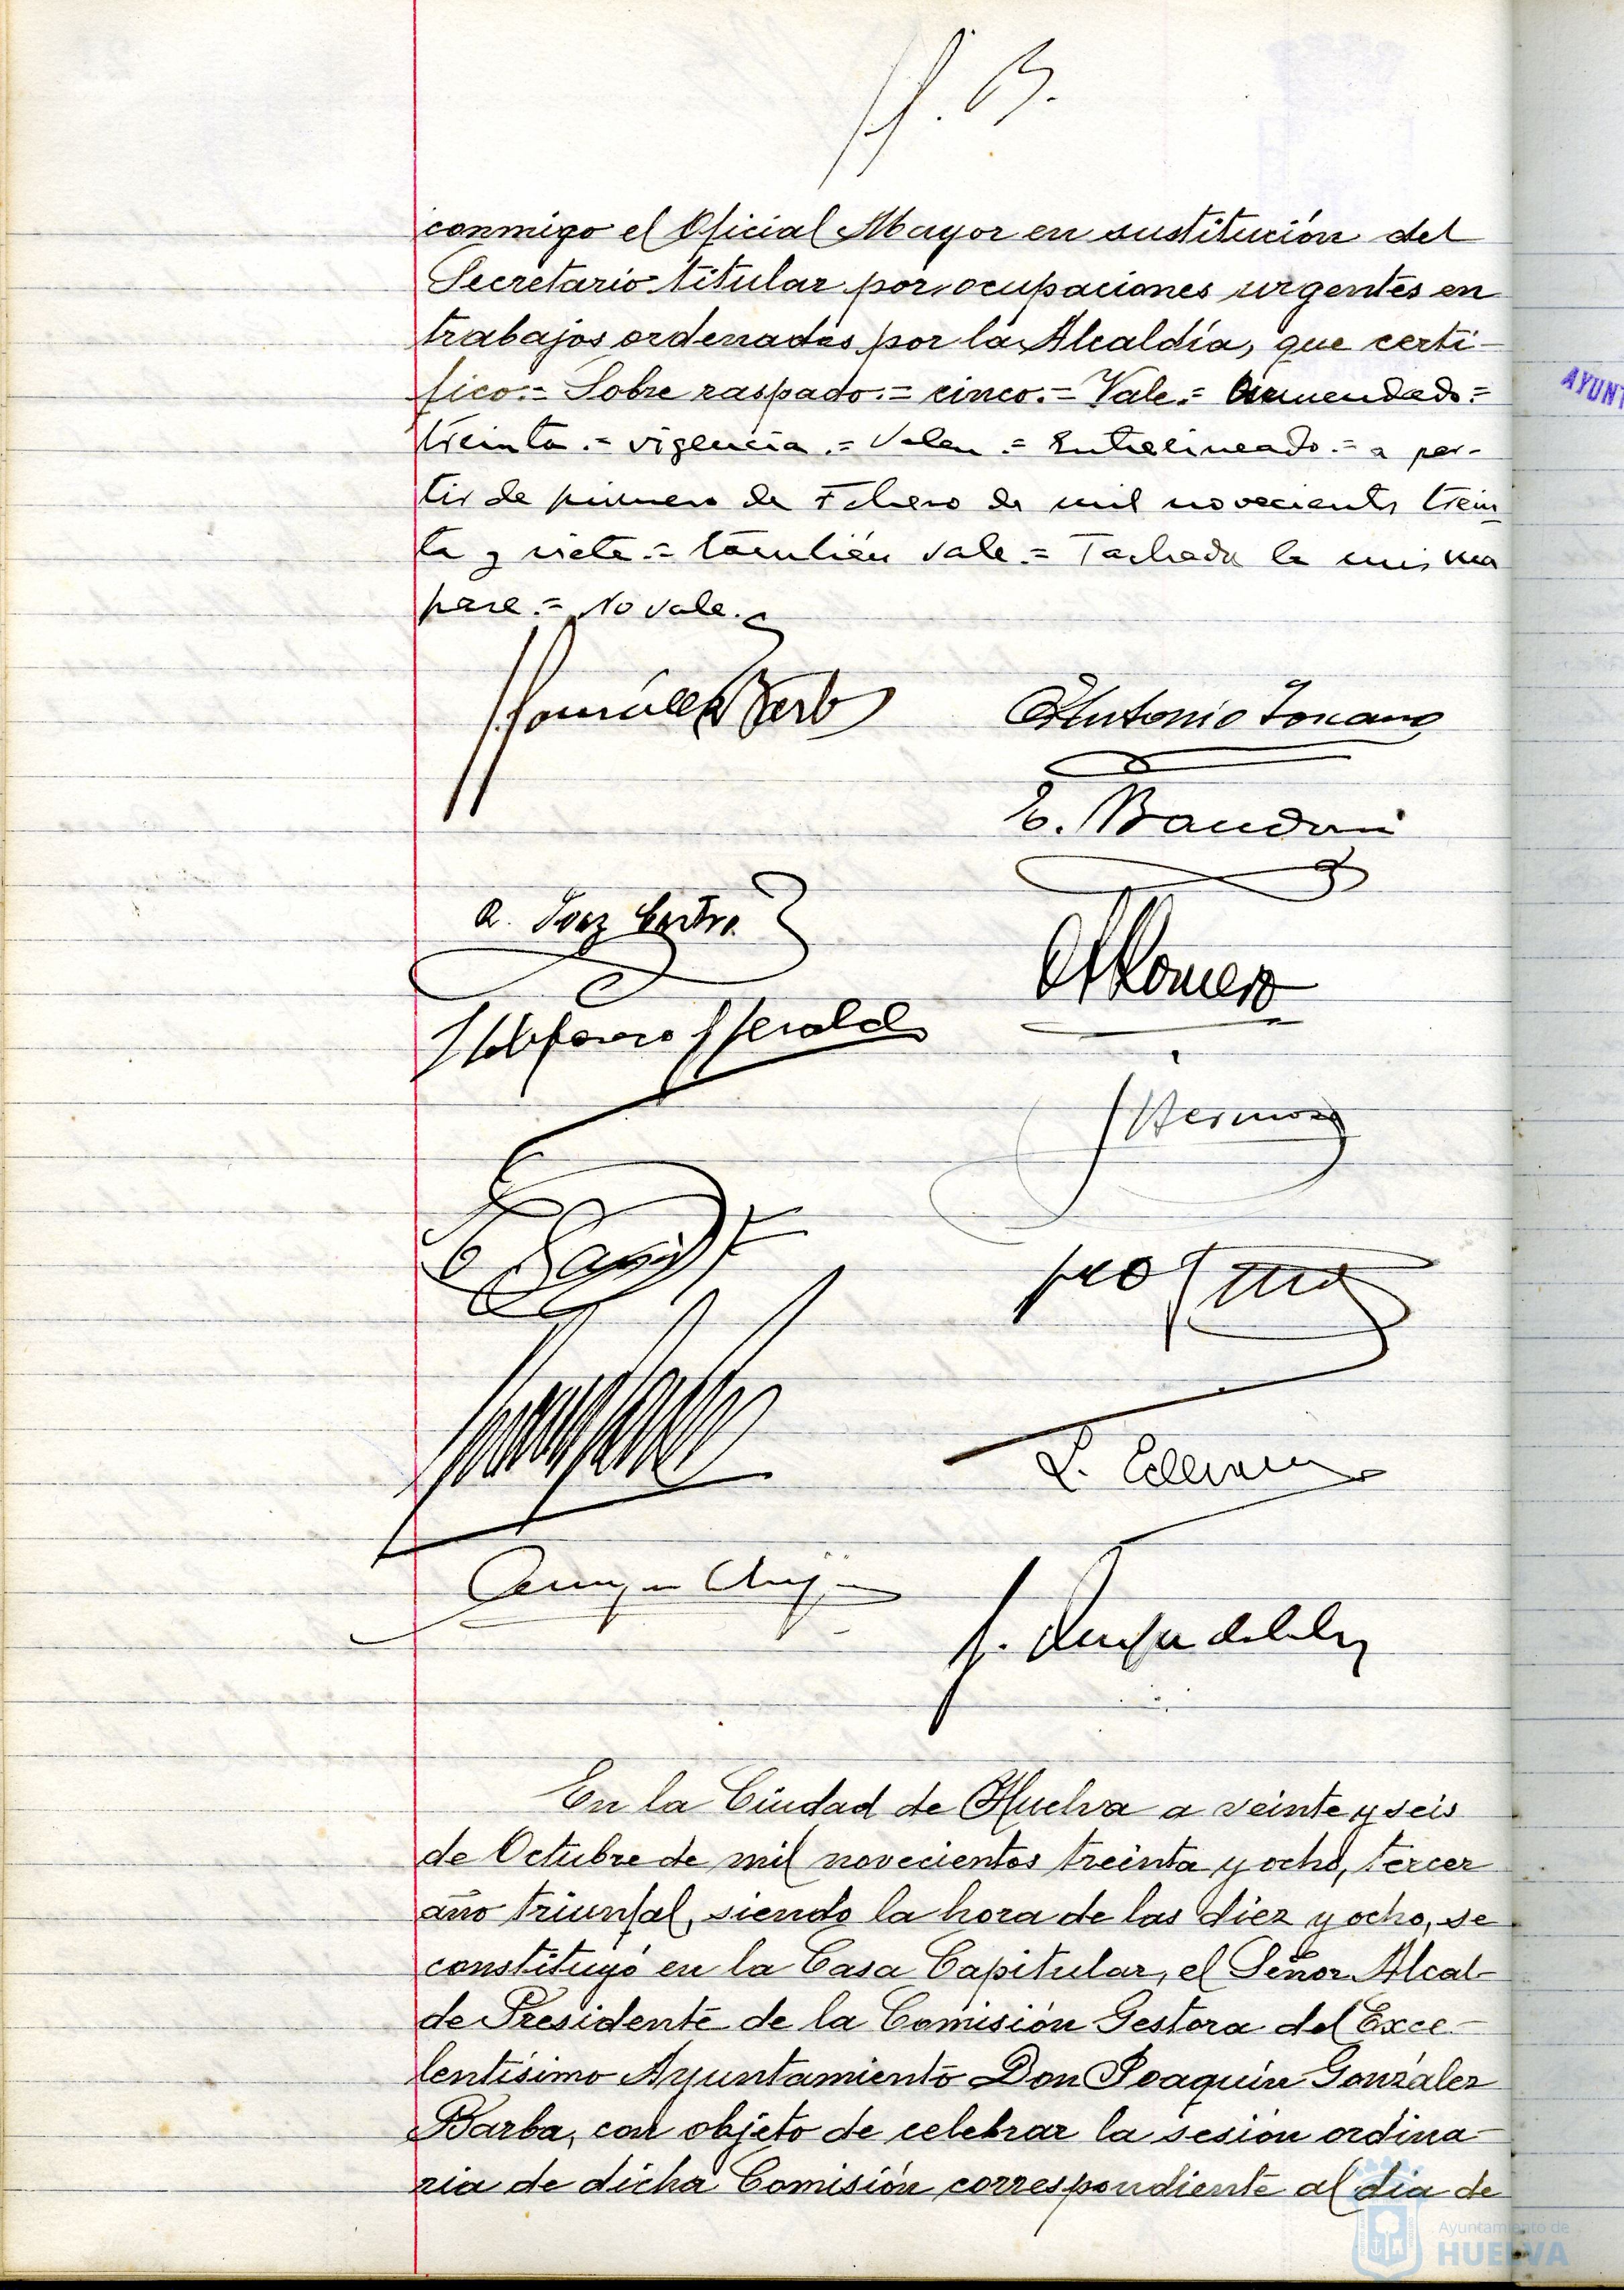 conmigo el Oficial Mayor en sustitución del
Secretario titular por ocupaciones urgentes en
trabajos ordenados por la Alcaldía, que certi-
fico.= Sobre raspado.= cinco.= Vale.= Enmendado.=
treinta.= vigencia.= Valen.= Entrelineado.= a par-
tir de primero de Febrero de mil novecientos trein
ta y siete.= también vale.= Tachada la misma
frase.= No vale.
González Barba
Antonio Toscano
E.
Romero
Hermoso
En la Ciudad de Huelva a veinte y seis
de Octubre de mil novecientos treinta y ocho, tercer
año triunfal, siendo la hora de las diez y ocho, se
constituyó en la Casa Capitular, el Señor Alcal-
de Presidente de la Comisión Gestora del Exce-
lentísimo Ayuntamiento Don Joaquín González
Barba, con objeto de celebrar la sesión ordina-
ria de dicha Comisión correspondiente al día de
AYUNT
Ayuntamiento de
HUELVA